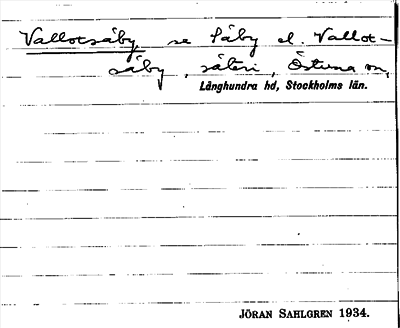 Vallotsäby, se Säby el. Vallot-
säby, säteri, Östuna sn,
Långhundra hd, Stockholms län.
JÖRAN SAHLGREN 1934.